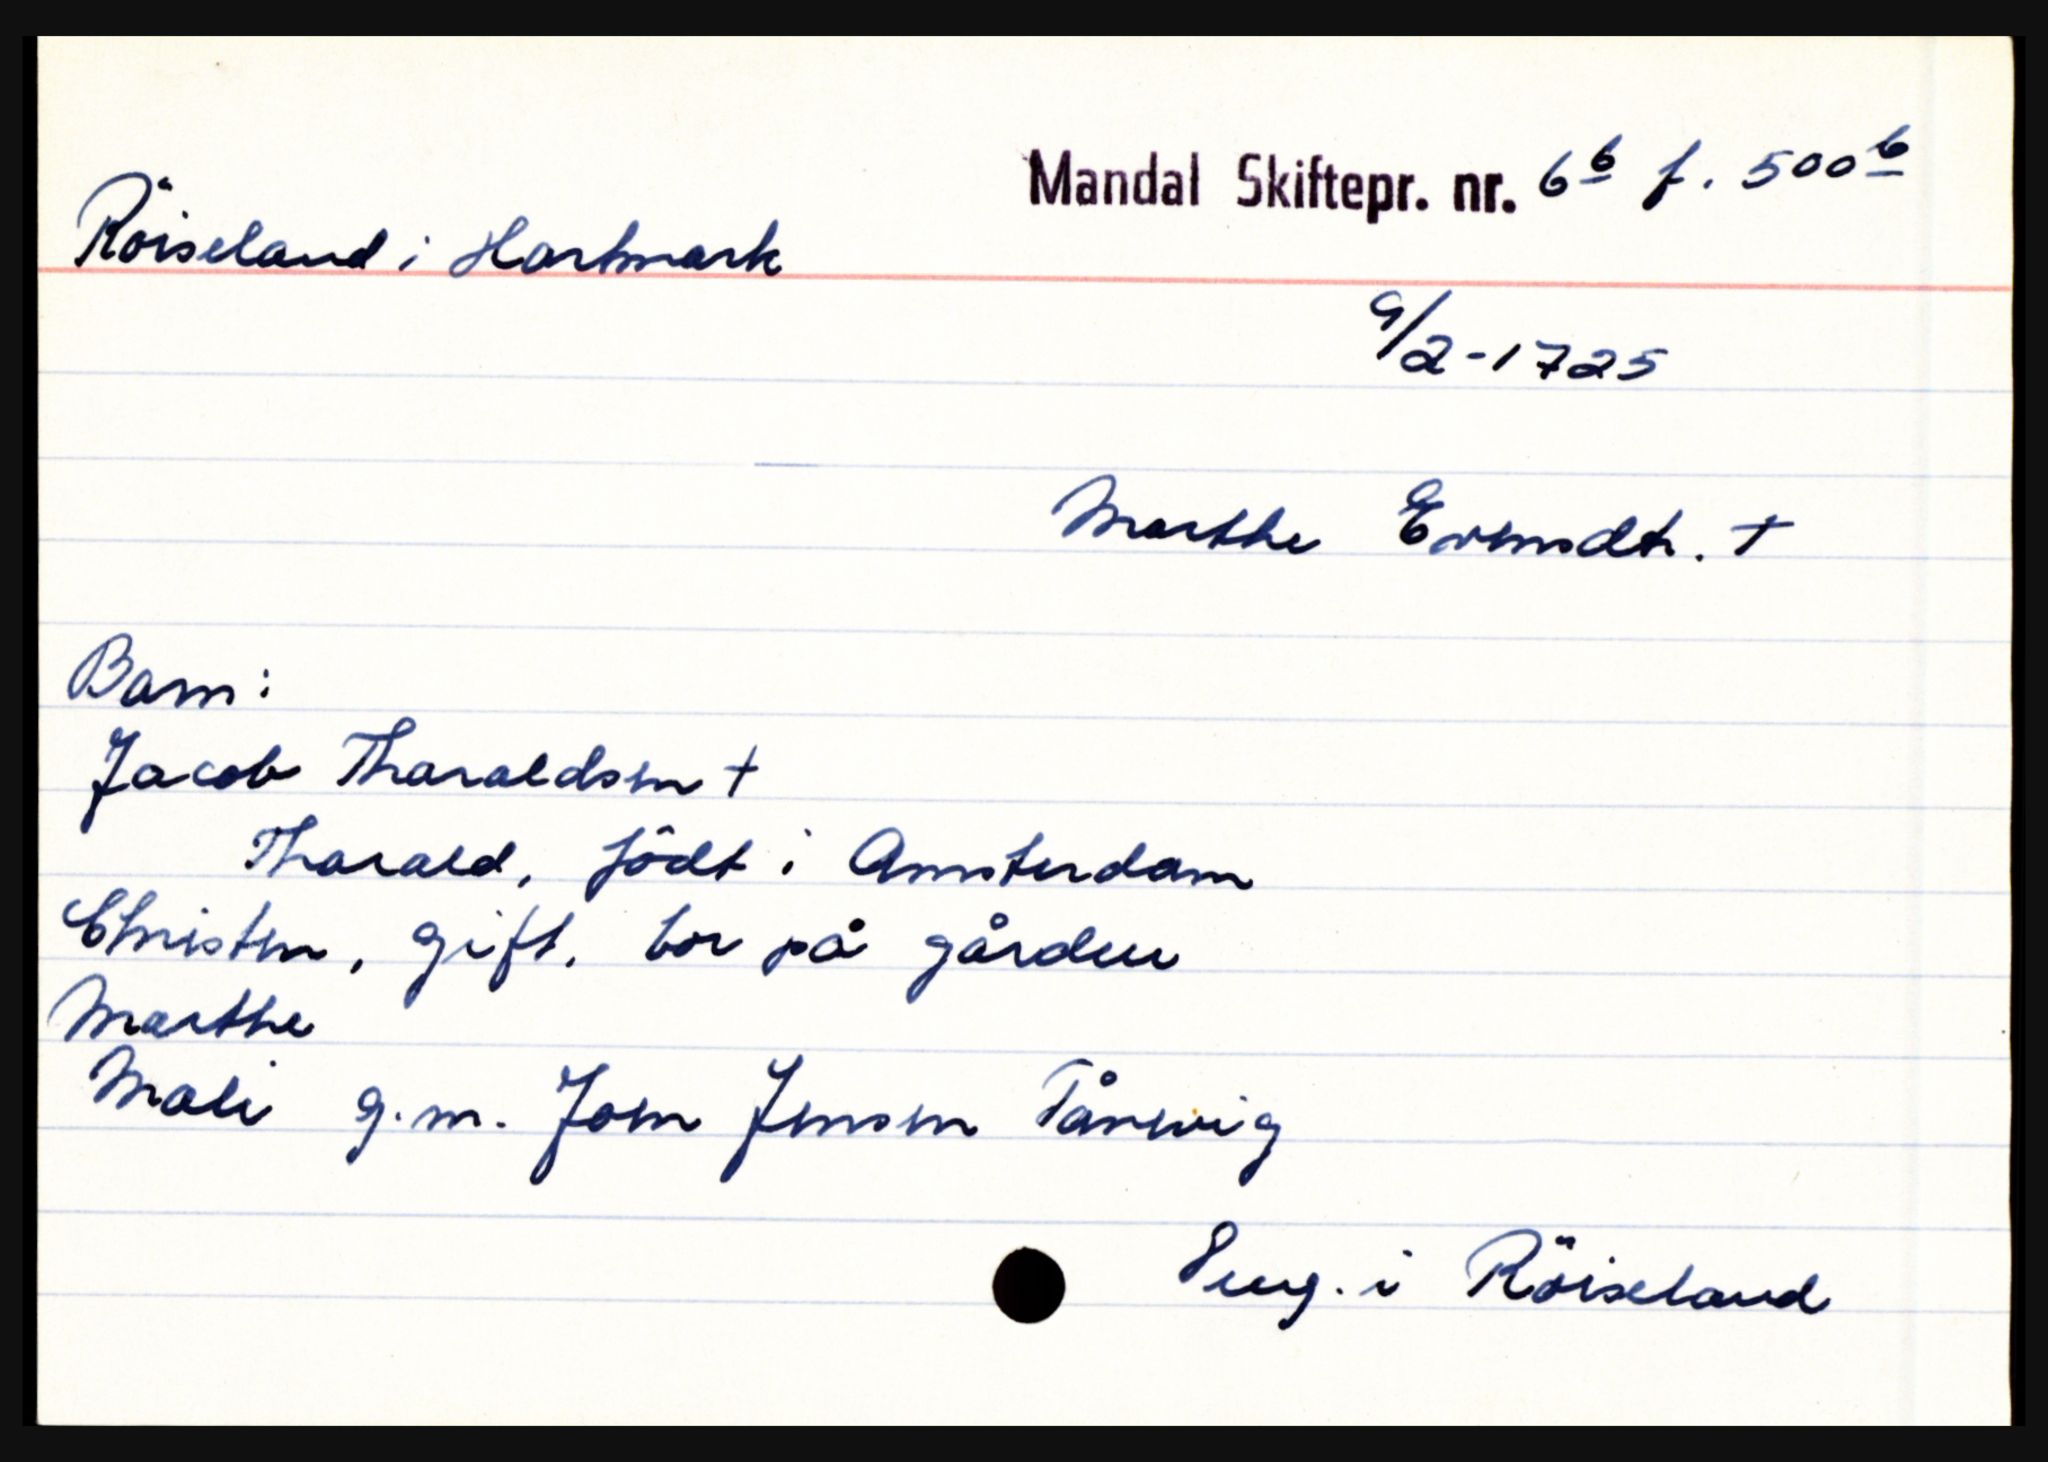 Mandal Skiftepr. nr. 6b f. 500b
Röiseland i Hartmark
9/2-1725
Marthe Evensdtr. +
Barn:
Jacob Tharaldsen +
Tharald, födt i Amsterdam
Christen, gift, bor på gården
Marthe
Mali g.m. Joen Jensen Tånevig
Eieg. i Röiseland